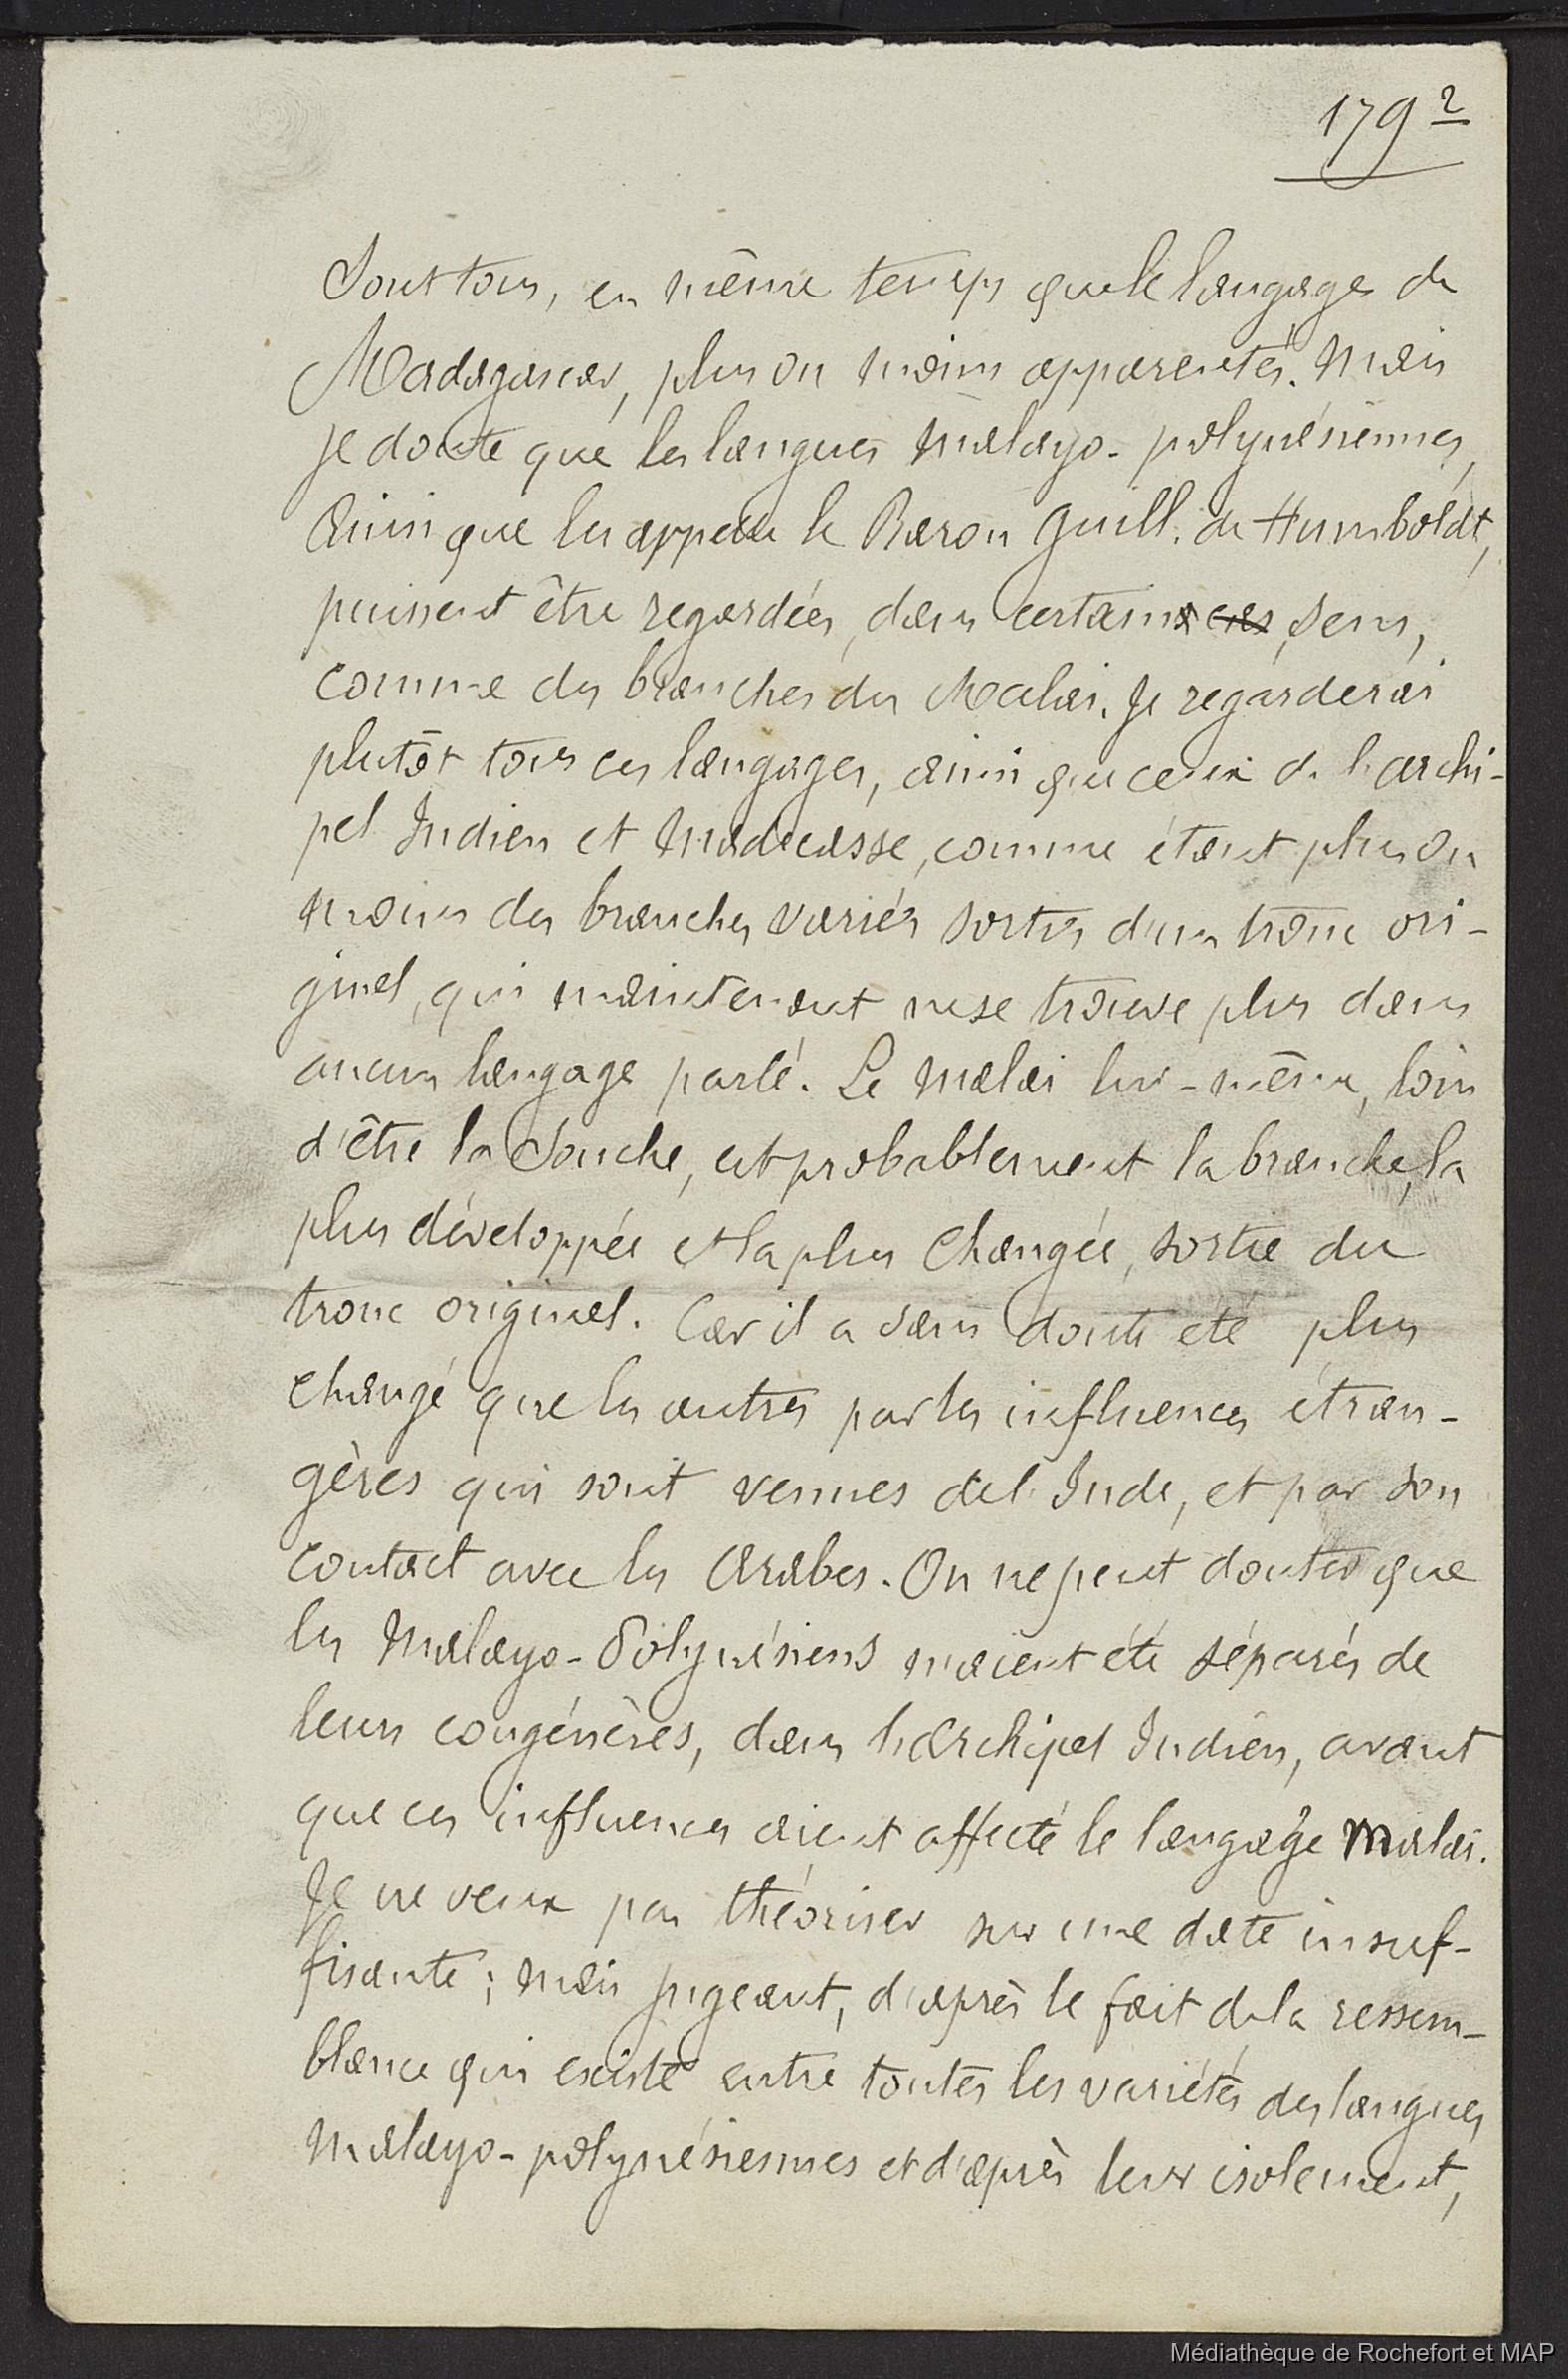 179 2
sont tous, en même temps que le langage de
Madagascar, plus ou moins apparentés. Mais
je doute que les langues malayo-polynésiennes,
ainsi que les appelle le Baron Guill. de Humboldt,
puissent être regardées, dans certains ces sens,
comme des branches du Malai. Je regarderai
plutôt tous ces langages, ainsi que ceux de l'archi-
pel Indien et madécasse, comme étant plus ou
moins des branches variées sorties d'un tronc ori-
ginel, qui maintenant ne se trouve plus dans
aucun langage parlé. Le malai lui-même, loin
d'être la souche, est probablement la branche, la
plus développée et la plus changée, sortie du
tronc originel. Car il a sans doute été plus
changé que les autres par les influences étran-
gères qui sont venues de l'Inde, et par son
contact avec les Arabes. On ne peut douter que
les Malayo-Polynésiens n'aient été séparés de
leurs congénères, dans l'archipel Indien, avant
que ces influences aient affecté le langage malai.
Je ne veux pas théoriser sur une date insuf-
fisante; mais jugeant, d'après le fait de la ressem-
blance qui existe entre toutes les variétés des langues
malayo-polynésiennes et d'après leur isolement,
Médiathèque de Rochefort et MAP